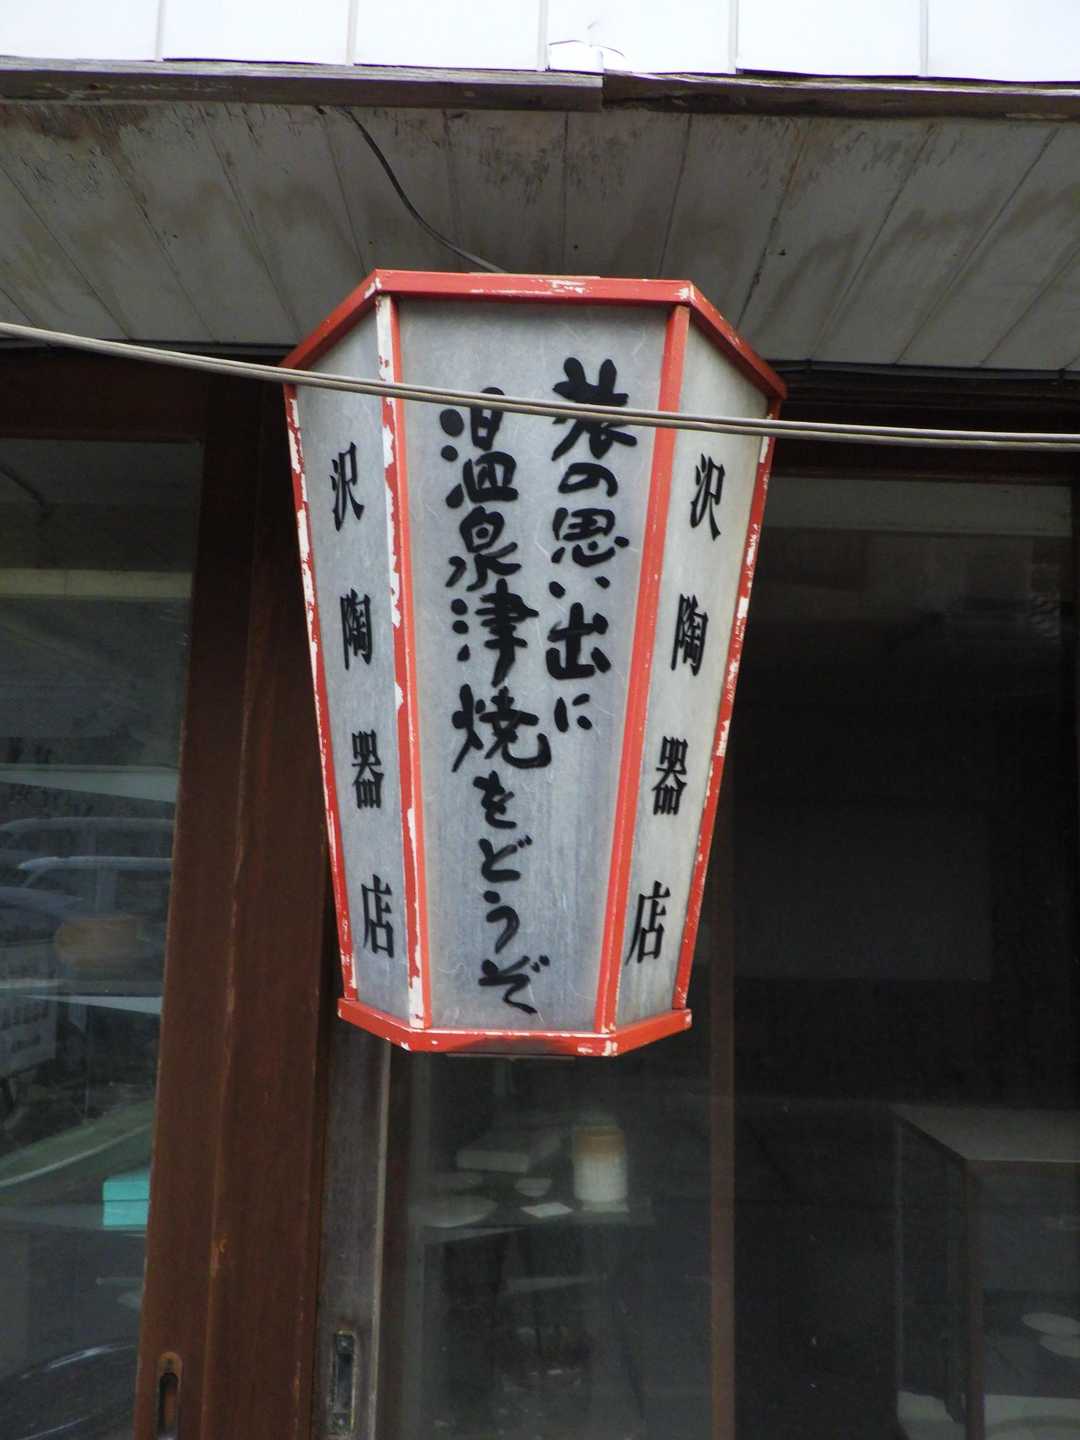 旅の思い出に
温泉津焼をどうぞ
沢陶器店
沢陶器店